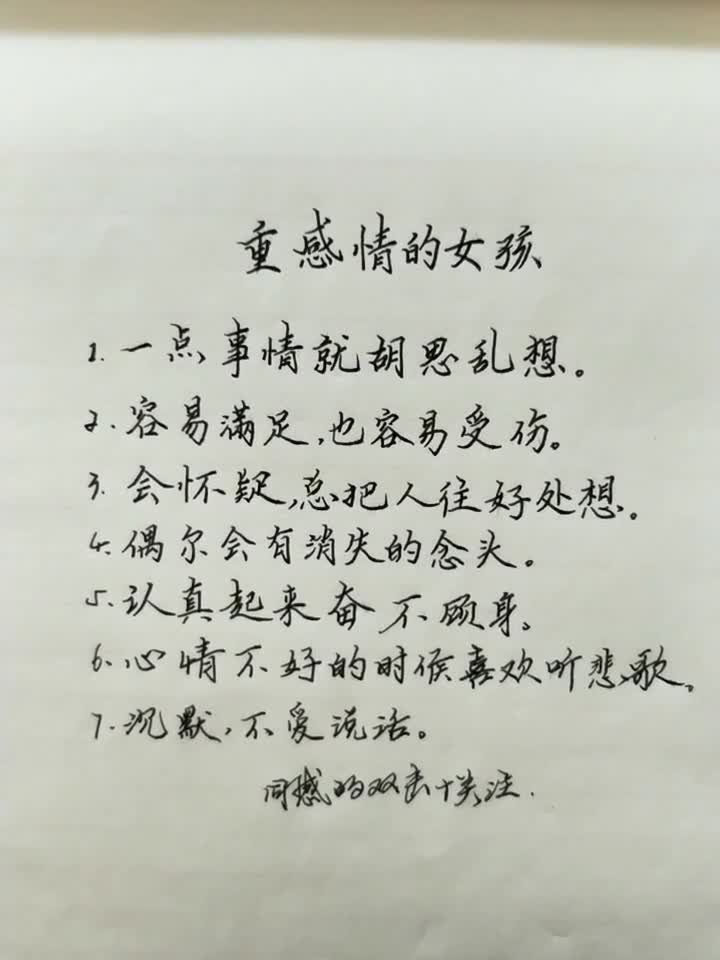 重感情的女孩
1.一点事情就胡思乱想。
2.容易满足,也容易受伤。
3.会怀疑,总把人往好处想。
4.偶尔会有消失的念头。
5.认真起来奋不顾身。
6.心情不好的时候喜欢听悲歌。
7.沉默,不爱说话。
同感的双击+关注.